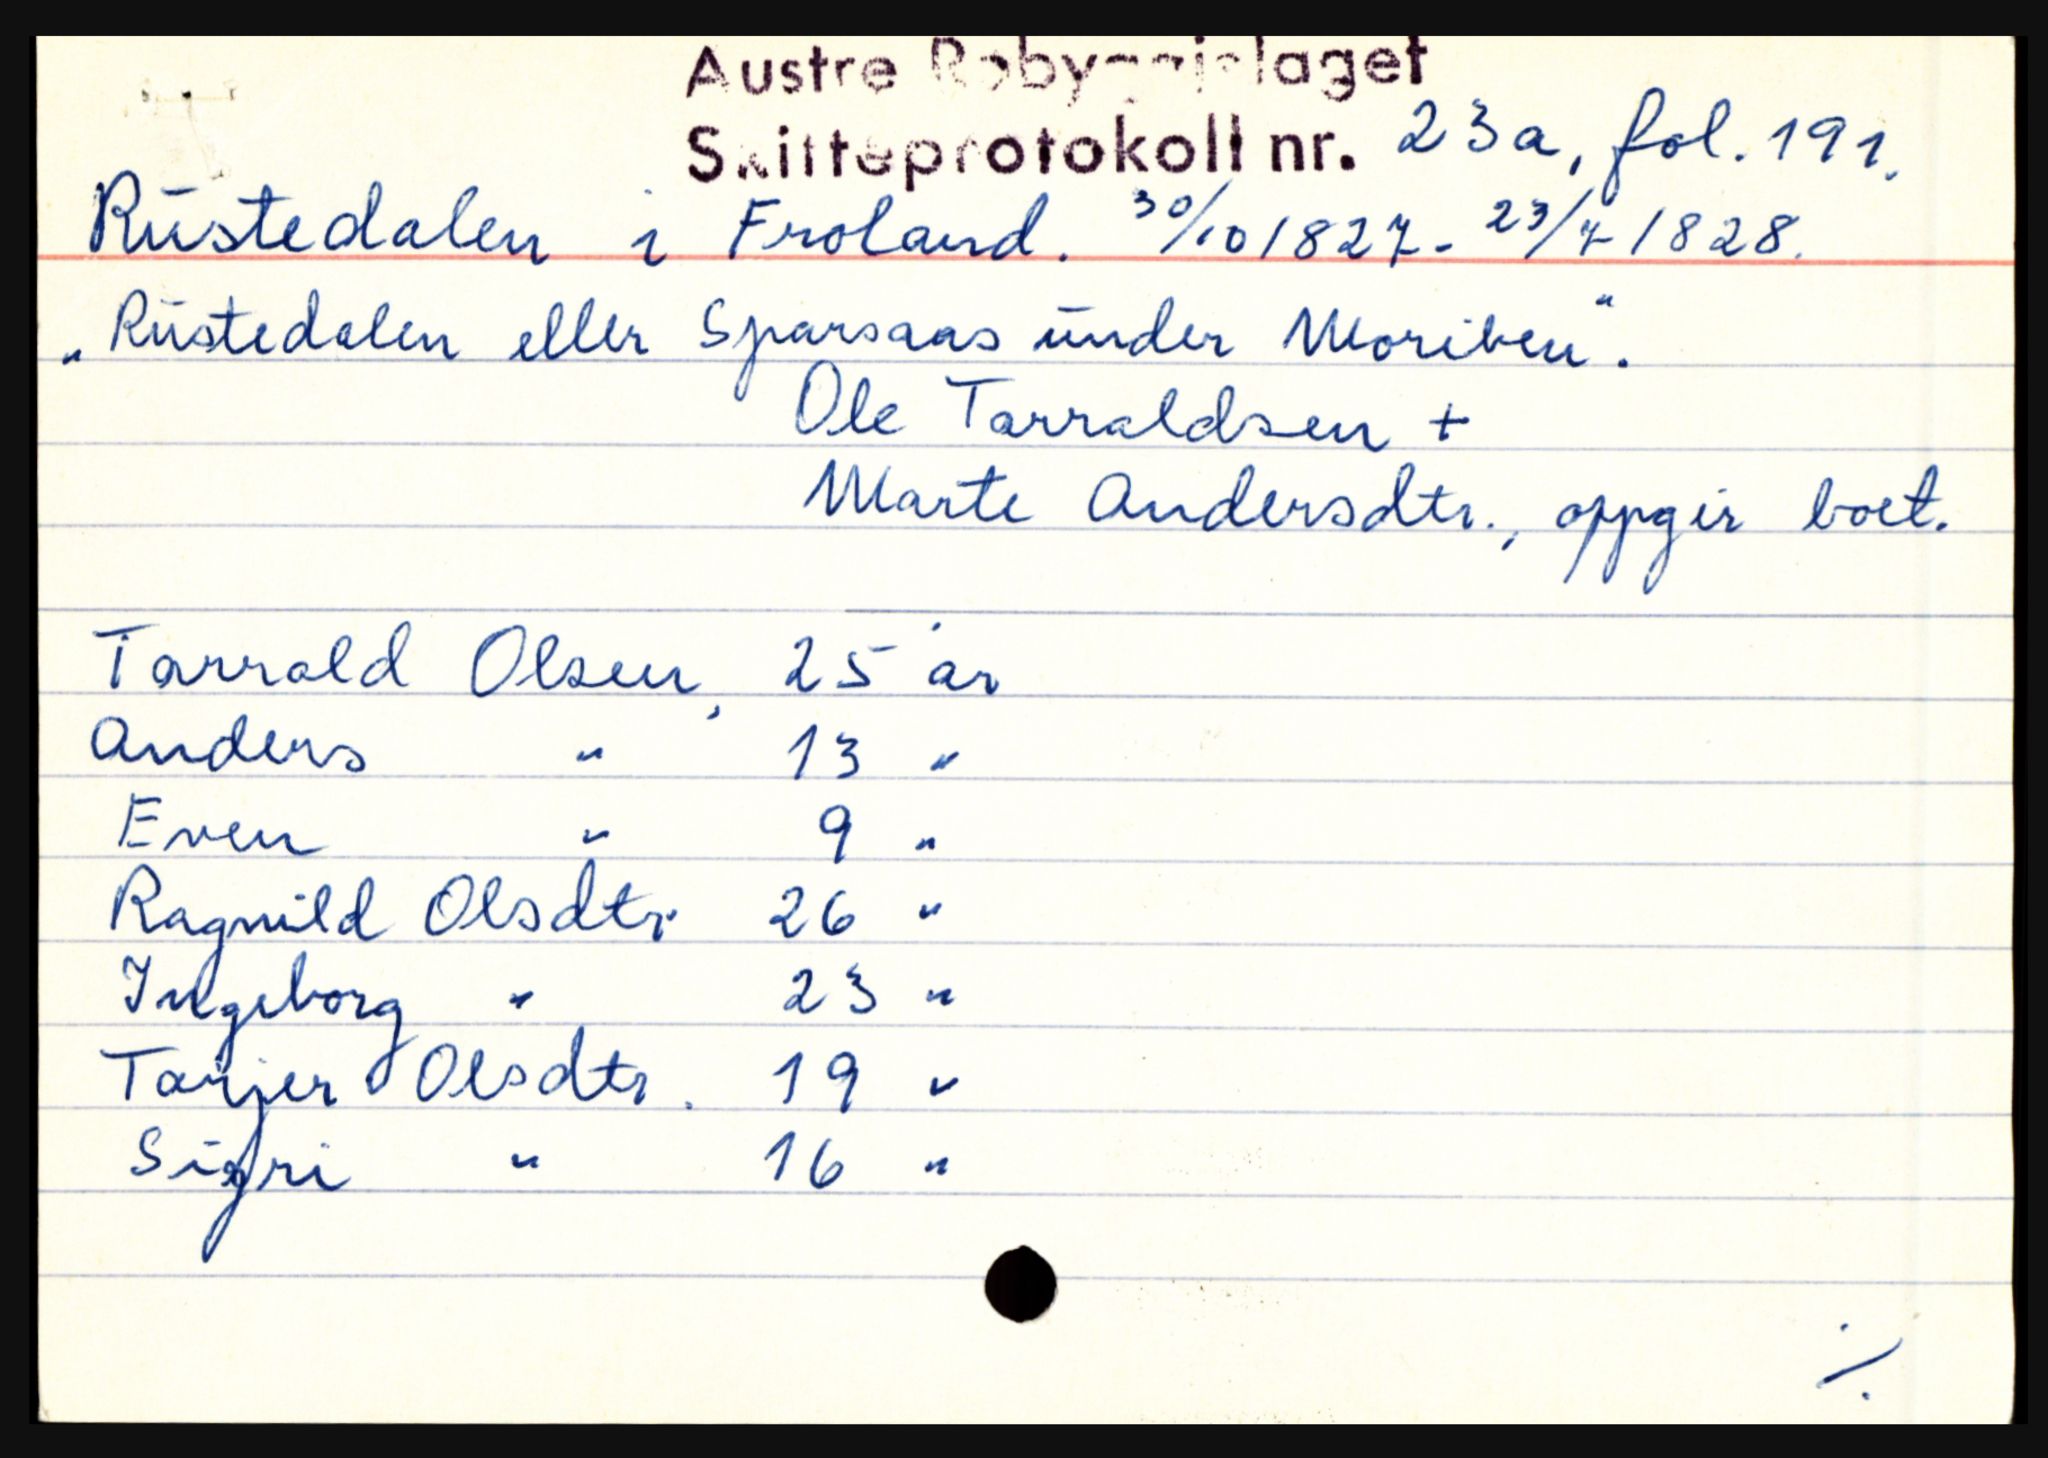 Austre Robyggjelaget
Skifteprotokoll nr. 23a, fol. 191.
Rustedalen i Froland. 30/10 1827 - 23/7 1828.
„Rustedalen eller Sparsaas under Moriken".
Ole Tarraldsen +
Marte Andersdtr., oppgir boet.
Tarrald Olsen, 25 år
Anders " 13 "
Even " 9 "
Ragnild Olsdtr. 26 "
Ingeborg " 23 "
Tarjer Olsdtr. 19 "
Sigri " 16 "
./.